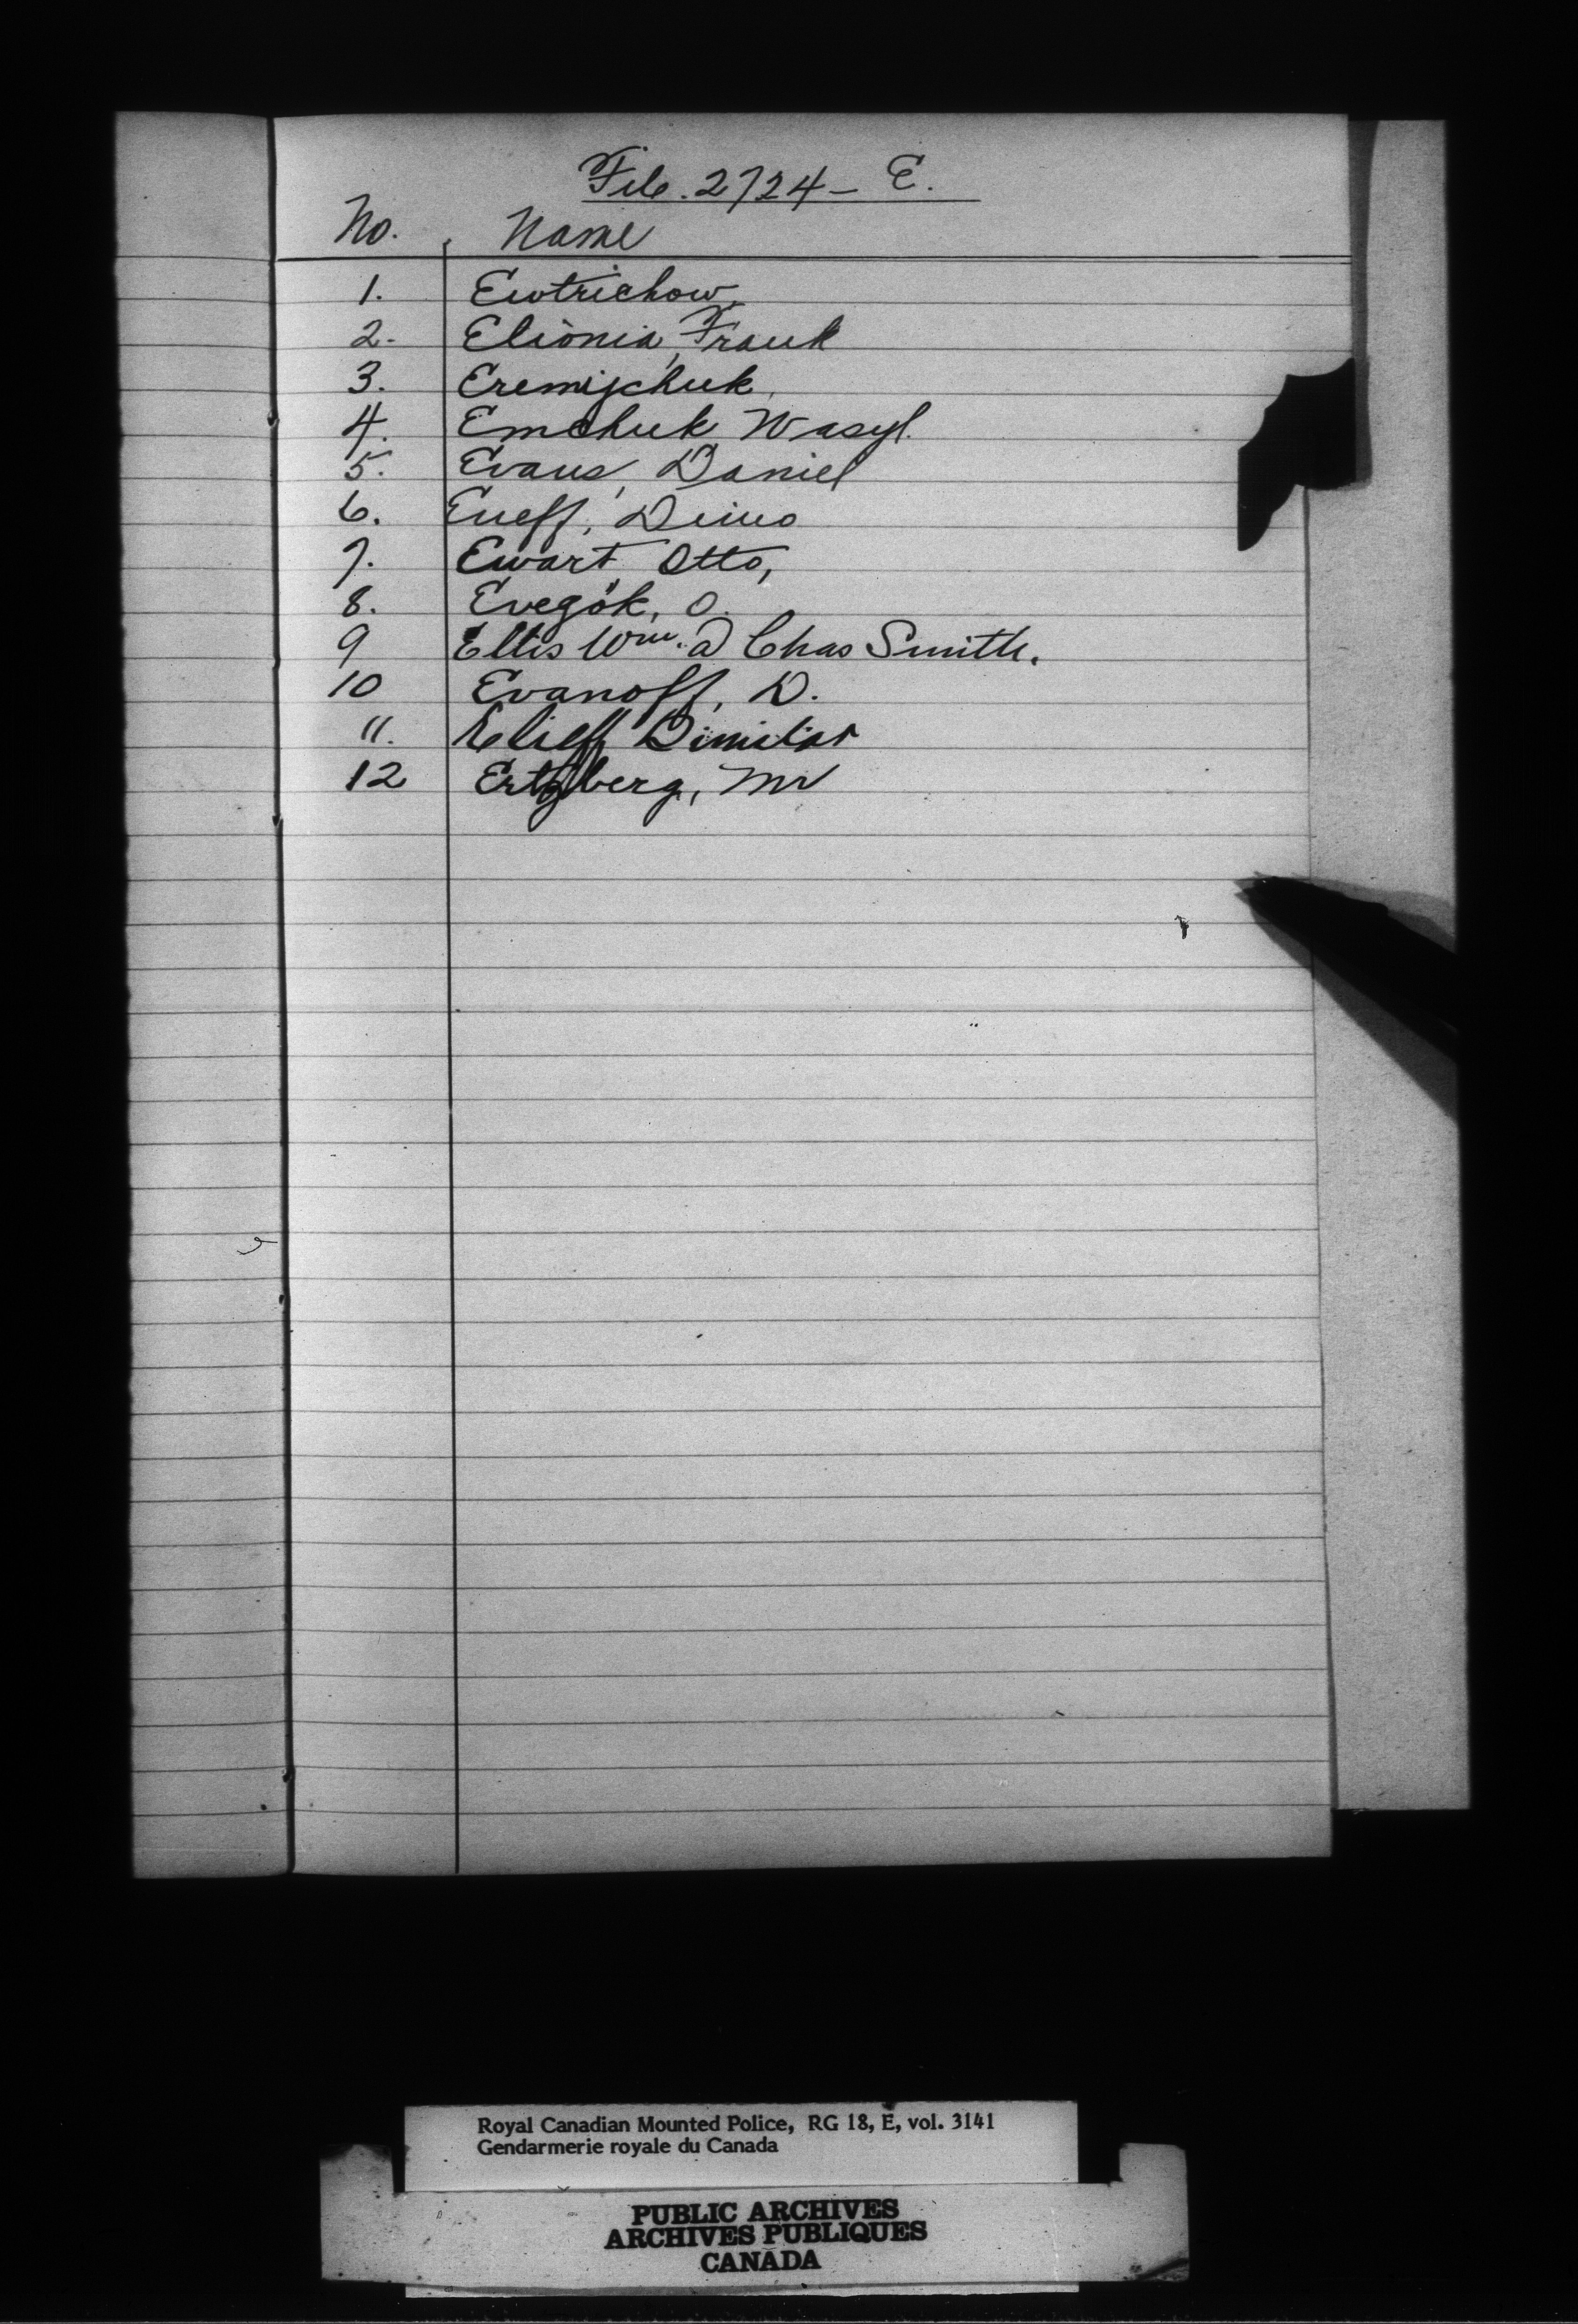 File. 2724 - E.
No. Name
1. Ewtrichow,
2. Elionia, Frank
3. Eremijchuk,
4. Emchuk Wasyl.
5. Evans, Daniel
6. Eneff, Dimo
7. Ewart Otto,
8. Evegök, O.
9 Eltis Wm. a Chas Smith.
10 Evanoff, D.
11. Elieff Dimitar
12 Ertzberg, Mr
Royal Canadian Mounted Police, RG 18, E, vol. 3141
Gendarmerie royale du Canada
PUBLIC ARCHIVES
ARCHIVES PUBLIQUES
CANADA